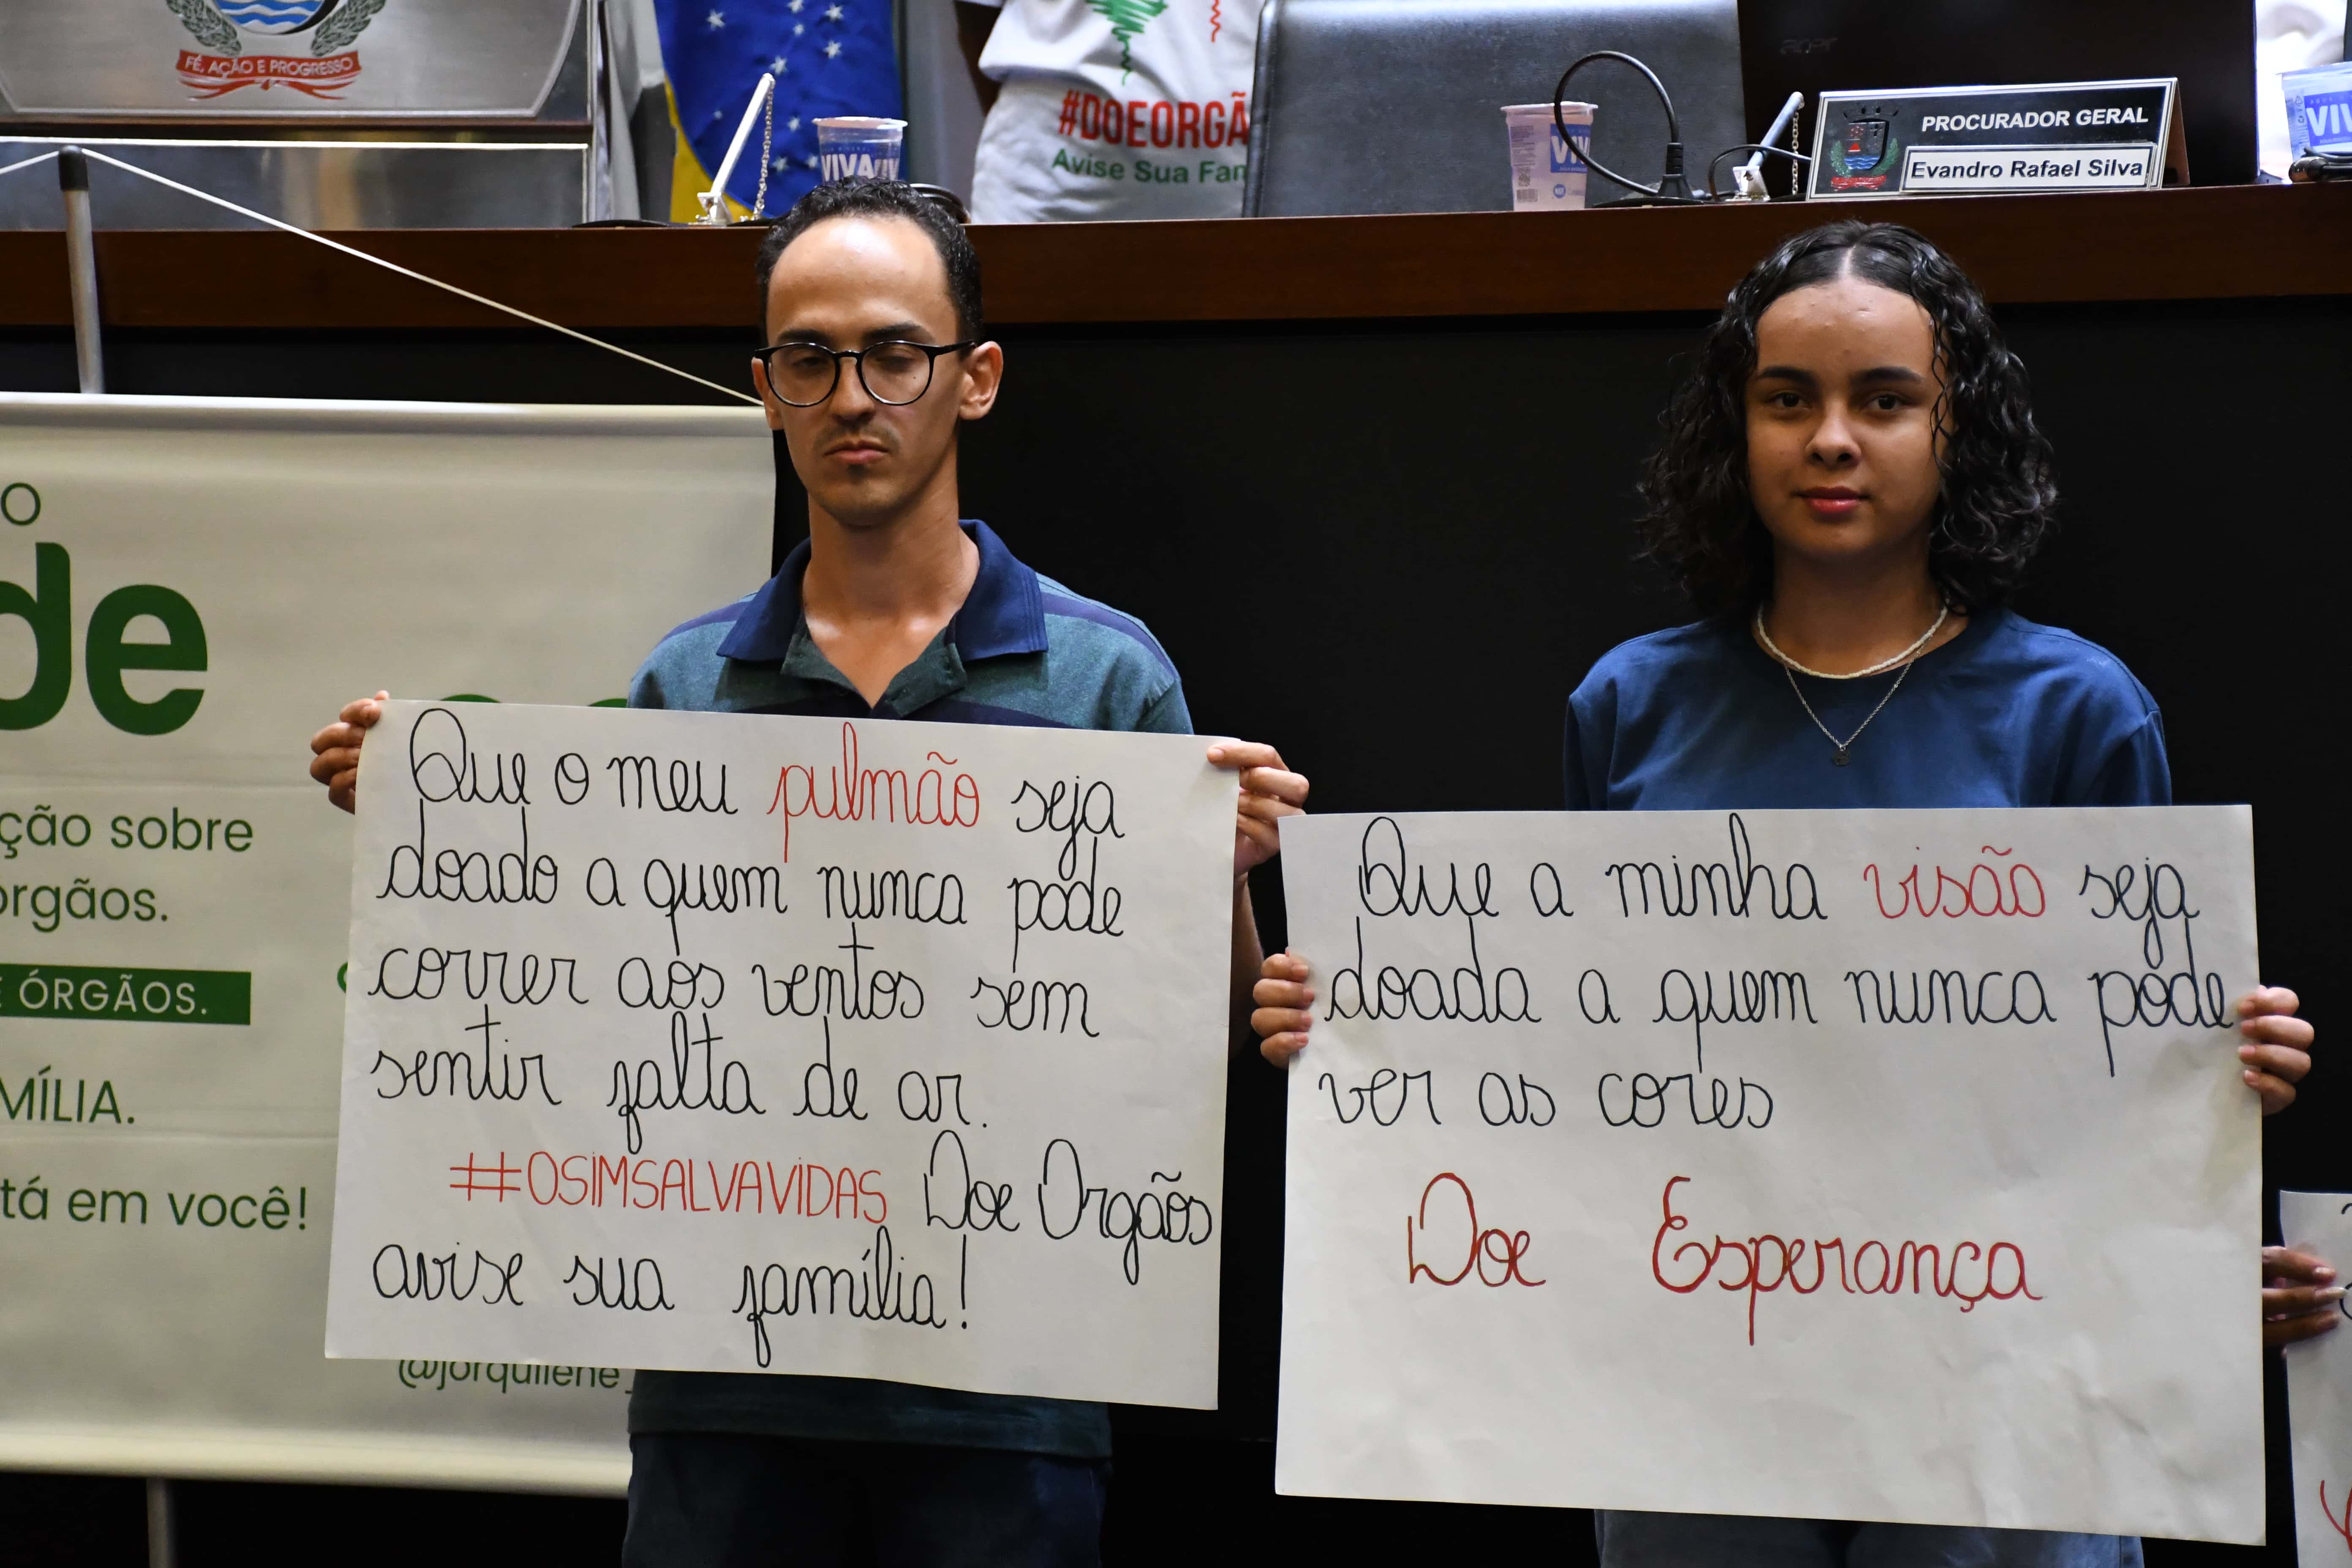 FÉ, AÇÃO E PROGRESSO
#DOEORGÃ
Avise Sua Fam
VIVA
PROCURADOR GERAL
Evandro Rafael Silva
acer
o
de
ção sobre
órgãos.
E ÓRGÃOS.
MÍLIA.
tá em você!
@jorquilene_
Que o meu pulmão seja
doado a quem nunca pode
correr aos ventos sem
sentir falta de ar.
#OSIMSALVAVIDAS Doe Orgãos
avise sua família!
Que a minha visão seja
doada a quem nunca pôde
ver as cores
Doe Esperança